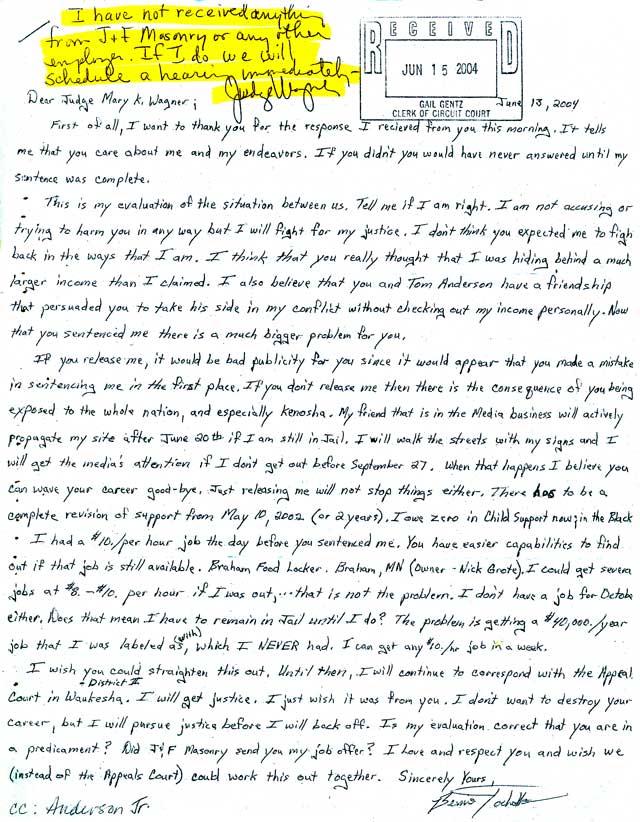 I have not received anythin
from J+F Masonry or any other
employer. If I do we will
schedule a hearin immediately-
Judge Wagner
RECEIVED
JUN 15 2004
GAIL GENTZ
CLERK OF CIRCUIT COURT
June 13, 2004
Dear Judge Mary K. Wagner;
First of all, I want to thank you for the response I recieved from you this morning. It tells
me that you care about me and my endeavors. If you didn't you would have never answered until my
sentence was complete.
This is my evaluation of the situation between us. Tell me if I am right. I am not accusing or
trying to harm you in any way but I will fight for my justice. I don't think you expected me to figh
back in the ways that I am. I think that you really thought that I was hiding behind a much
larger income than I claimed. I also believe that you and Tom Anderson have a friendship
that persuaded you to take his side in my conflict without checking out my income personally. Now
that you sentenced me there is a much bigger problem for you.
If you release me, it would be bad publicity for you since it would appear that you made a mistake
in sentencing me in the first place. If you don't release me then there is the consequence of you being
exposed to the whole nation, and especially Kenosha. My friend that is in the Media business will actively
propagate my site after June 20th if I am still in Jail. I will walk the streets with my signs and I
will get the media's attention if I don't get out before September 27. When that happens I believe you
can wave your career good-bye. Just releasing me will not stop things either. There has to be a
complete revision of support from May 10, 2002 (or 2 years). I owe zero in Child Support now; in the Black
I had a $10./per hour job the day before you sentenced me. You have easier capabilities to find
out if that job is still available. Braham Food Locker. Braham, MN (Owner - Nick Grote). I could get severa
jobs at $8.-$10. per hour if I was out,... that is not the problem. I don't have a job for Octobe
either. Does that mean I have to remain in Jail until I do? The problem is getting a $40,000./year
job that I was labeled as (with), which I NEVER had. I can get any $10./hr job in a week.
I wish you could straighten this out. Until then, I will continue to correspond with the Appeal
- District II
Court in Waukesha. I will get justice. I just wish it was from you. I don't want to destroy your
career, but I will pursue justice before I will back off. Is my evaluation correct that you are in
a predicament? Did J&F Masonry send you my job offer? I love and respect you and wish we
(instead of the Appeals Court) could work this out together. Sincerely Yours,
cc: Anderson Jr